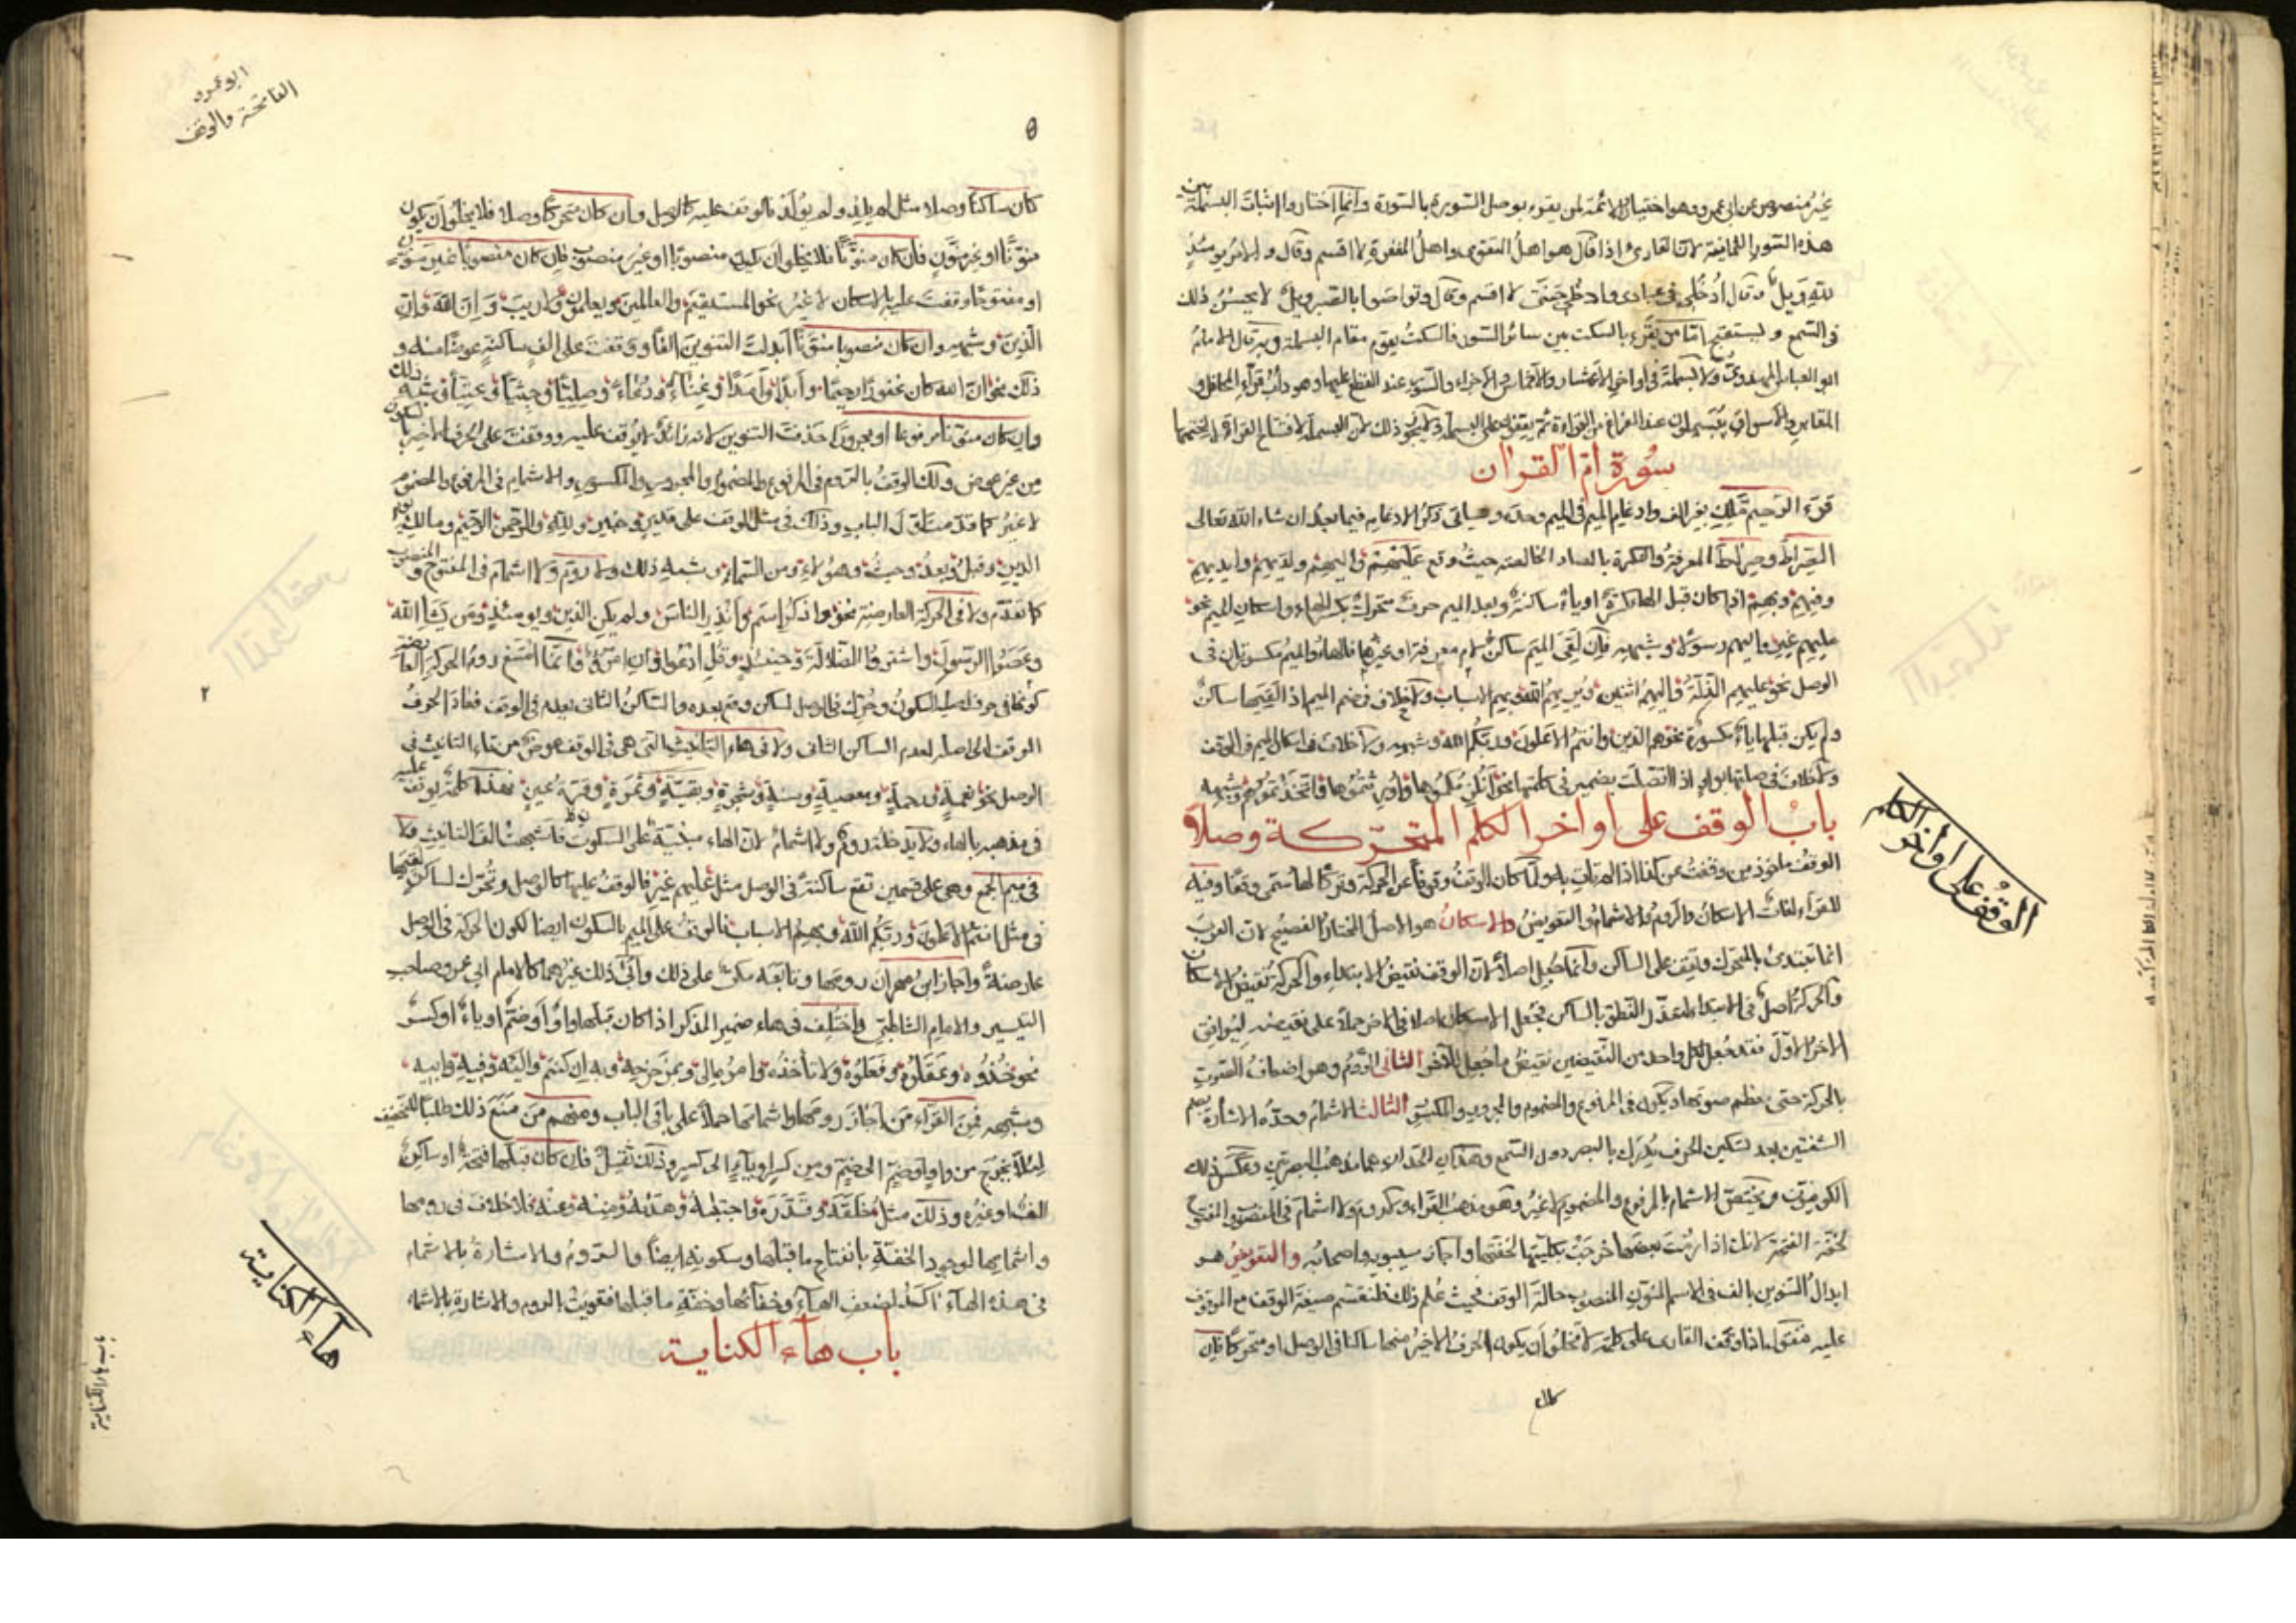 غير منصوص عن ابي عمرو وهو اختيار الائمة لمن يقرء بوصل السورة بالسورة وانما اختاروا اثبات البسملة بين
هذه السور القارئ اذا قال هو اهل التقوى واهل المغفرة لا اقسم وقال والامر يومئذ
لله ويل وقال ادخلي في عبادى وادخلي جنتى لا اقسم وقال وتواصوا بالصبر ويل لا يحسن ذلك
في السمع و من يقرء بالسكت بين سائر السور فالسكت يقوم مقام البسملة وبه قال الامام
ابو العباس المهدوى ولا بسملة في اواخر الاعشار والاخماس والاجزاء والسور عند القطع عليها وهو دأب قراء المحافل و
المقابر والاسواق يبسملون عند الفراغ من القراءة ثم يقفون على البسملة ولا يجوز ذلك لان البسملة لافتتاح القراءة لا لختمها
سورة ام القران
قرء الرحيم ملك بغير الف وادغام الميم في الميم وحده وسياتى ذكر الادغام فيما بعد ان شاء الله تعالى
الصراط وصراط المعرفة والنكرة بالصاد الخالصة حيث وقع عليهم واليهم ولديهم وايديهم
وفيهم وبهم اذا كان قبل الهاء كسرة او ياء ساكنة وبعد الميم حرف متحرك بكسر الهاء واسكان الميم نحو
عليهم غير واليهم رسولا وشبهه فان لقى الميم ساكن لام معرفة او غيرها فالهاء والميم مكسورتان في
الوصل نحو عليهم الذلة واليهم اثنين ويريهم الله وبهم الاسباب ولا خلاف في ضم الميم اذا لقيها ساكن
ولم يكن قبلها ياء كسرة نحو هم الذين وانتم الاعلون وربكم الله وشبهه ولا خلاف في اسكان الميم في الوقف
ولا خلاف في صلتها بواو اذا اتصلت بضمير في كلمتها نحو انلزمكموها واورثتموها فاتخذتموهم وشبهه
باب الوقف على اواخر الكلم المتحركة وصلا
الوقف ماخوذ من وقفت عن كذا اذا لم تأت به ولما كان الوقف وقوفا عن الحركة وتركا لها سمى وقفا وفيه
للقراء لغات الاسكان والروم والاشمام والتعويض والاسكان هو الاصل المختار الفصيح لان العرب
انما تبتدئ بالمتحرك وتقف على الساكن وانما جعل اصلا لان الوقف نقيض الابتداء والحركة نقيض الاسكان
والحركة اصل في الابتداء لتعذر النطق بالساكن فجعل الاسكان اصلا في الاخر حملا على نقيضه ليوافق
الاخر الاول فقد جعل لكل واحد من النقيضين نقيض ما جعل للآخر الثانى الروم وهو اضعاف الصوت
بالحركة حتى صوتها ويكون في المرفوع والمضموم والمجرور والمكسور الثالث الاشمام وحده الاشارة بضم
الشفتين بعد تسكين الحرف يدرك بالبصر دون السمع وهذان الحدان هما مذهب البصريين وعكس ذلك
الكوفيون ويختص الاشمام بالمرفوع والمضموم لا غير وهو مذهب القراء ولا روم ولا اشمام في المنصوب والمفتوح
لخفة الفتحة لانك اذا رمت بعضها خرجت بكليتها لخفتها واجاز سيبويه واصحابه والتعويض هو
ابدال التنوين بالف في الاسم المنون المنصوب حالة الوقف فحيث علم ذلك فلنقسم صيغة الوقف مع الموقوف
عليه فنقول اذا وقف القارى على كلمة لا يخلو ان يكون الحرف الاخير منها ساكنا في الوصل او متحركا فان
كان
الوقف على اواخر الكلم
ابو عمرو
الفاتحة والوقف
كان ساكنا وصلا مثل لم يلد ولم يولد فالوقف عليه كالوصل وان كان متحركا وصلا فلا يخلو ان يكون
منونا او غير منون فان كان منونا فلا يخلو ان يكون منصوبا او غير منصوب فان كان منصوبا غير منون
او مفتوحا وقفت عليه بالاسكان لا غير نحو المستقيم والعالمين ويعلمون ولا ريب وان الله وان
الذين وشبهه وان كان منصوبا منونا ابدلت التنوين الفا ووقفت على الف ساكنة عوضا منه و
ذلك نحو ان الله كان غفورا رحيما وابدا وامدا وغثاء ودعاء وصليا وجثيا وعتيا وشبه ذلك
وان كان منونا مرفوعا او مجرورا حذفت التنوين لانه زائد لا يوقف عليه ووقفت على الحرف الاخير بالسكون
من غير عوض ولك الوقف بالروم في المرفوع والمضموم والمجرور والمكسور والاشمام في المرفوع والمضموم
لا غير كما قدمنا في اول الباب وذلك في مثل الوقف على قدير وحين ولله والرحمن الرحيم ومالك يوم
الدين وقبل وبعد وحيث وهؤلاء ومن السماء وشبه ذلك ولا روم ولا اشمام في المفتوح والمنصوب
كما تقدم ولا في الحركة العارضة نحو واذكر اسم وانذر الناس ولم يكن الذين ويومئذ ومن يشا الله
وعصوا الرسول واشتروا الضلالة وحينئذ وقل ادعوا وان امرؤ وانما امتنع روم الحركة العارضة
كونها في حرف اصله السكون وحرك في الوصل لساكن وقع بعده والساكن الثانى يعدم في الوقف فعاد الحرف
الموقف الى اصله لعدم الساكن الثانى ولا في هاء التانيث التى هي في الوقف عوض من تاء التانيث في
الوصل نحو نعمة ورحمة ومعصية وسنة وشجرة وبقية وثمرة وقرة عين فهذا كله يوقف عليه
في مذهبه بالهاء ولا يدخله روم ولا اشمام لان الهاء مبنية على السكون فاشبهت الف التانيث ولا
في ميم الجمع وهى على قسمين تقع ساكنة في الوصل مثل عليهم غير فالوقف عليها كالوصل وتحرك لساكن لقيها
في مثل انتم الاعلون وربكم الله وبهم الاسباب فالوقف على الميم بالسكون ايضا لكون الحركة في الوصل
عارضة واجاز ابن مهران رومها وتابعه مكى على ذلك وابى ذلك غيرهما كالامام ابي عمرو صاحب
التيسير والامام الشاطبي واختلف في هاء ضمير المذكر اذا كان قبلها واو او ضم او ياء او كسر
نحو خذوه وعقلوه وفعلوه ولا تأخذه وامره الى وبمزحزحه وبه ان كنتم واليه وفيه وابيه
وشبهه فمن القراء من اجاز رومها واشمامها حملا على باقى الباب ومنهم من منع ذلك طلبا للتخفيف
لئلا يخرج من واو او ضم الى ضم ومن كسر او ياء الى كسر وذلك ثقيل فان كان قبلها فتحة او ساكن
الف او غيره وذلك مثل خلقه وقدره واجتباه وهداه ومنه وعنه فلا خلاف في رومها
واشمامها لوجود الخفة بانفتاح ما قبلها وسكونه ايضا والروم والاشارة بالاشمام
في هذه الهاء اكد لضعف الهاء وخفائها وخفة ما قبلها فقويت بالروم والاشارة بالاشمام
باب هاء الكناية
هاء الكناية
باب هاء الكناية